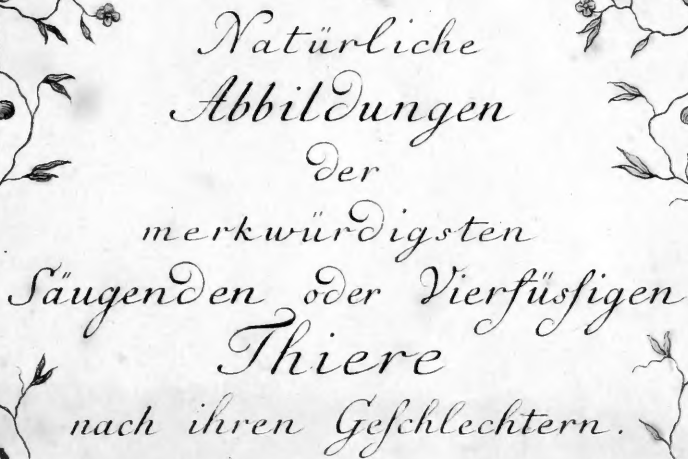 Natürliche
Abbildungen
der
merkwürdigsten
Säugenden oder Vierfüſsigen
Thiere
nach ihren Geſchlechtern.